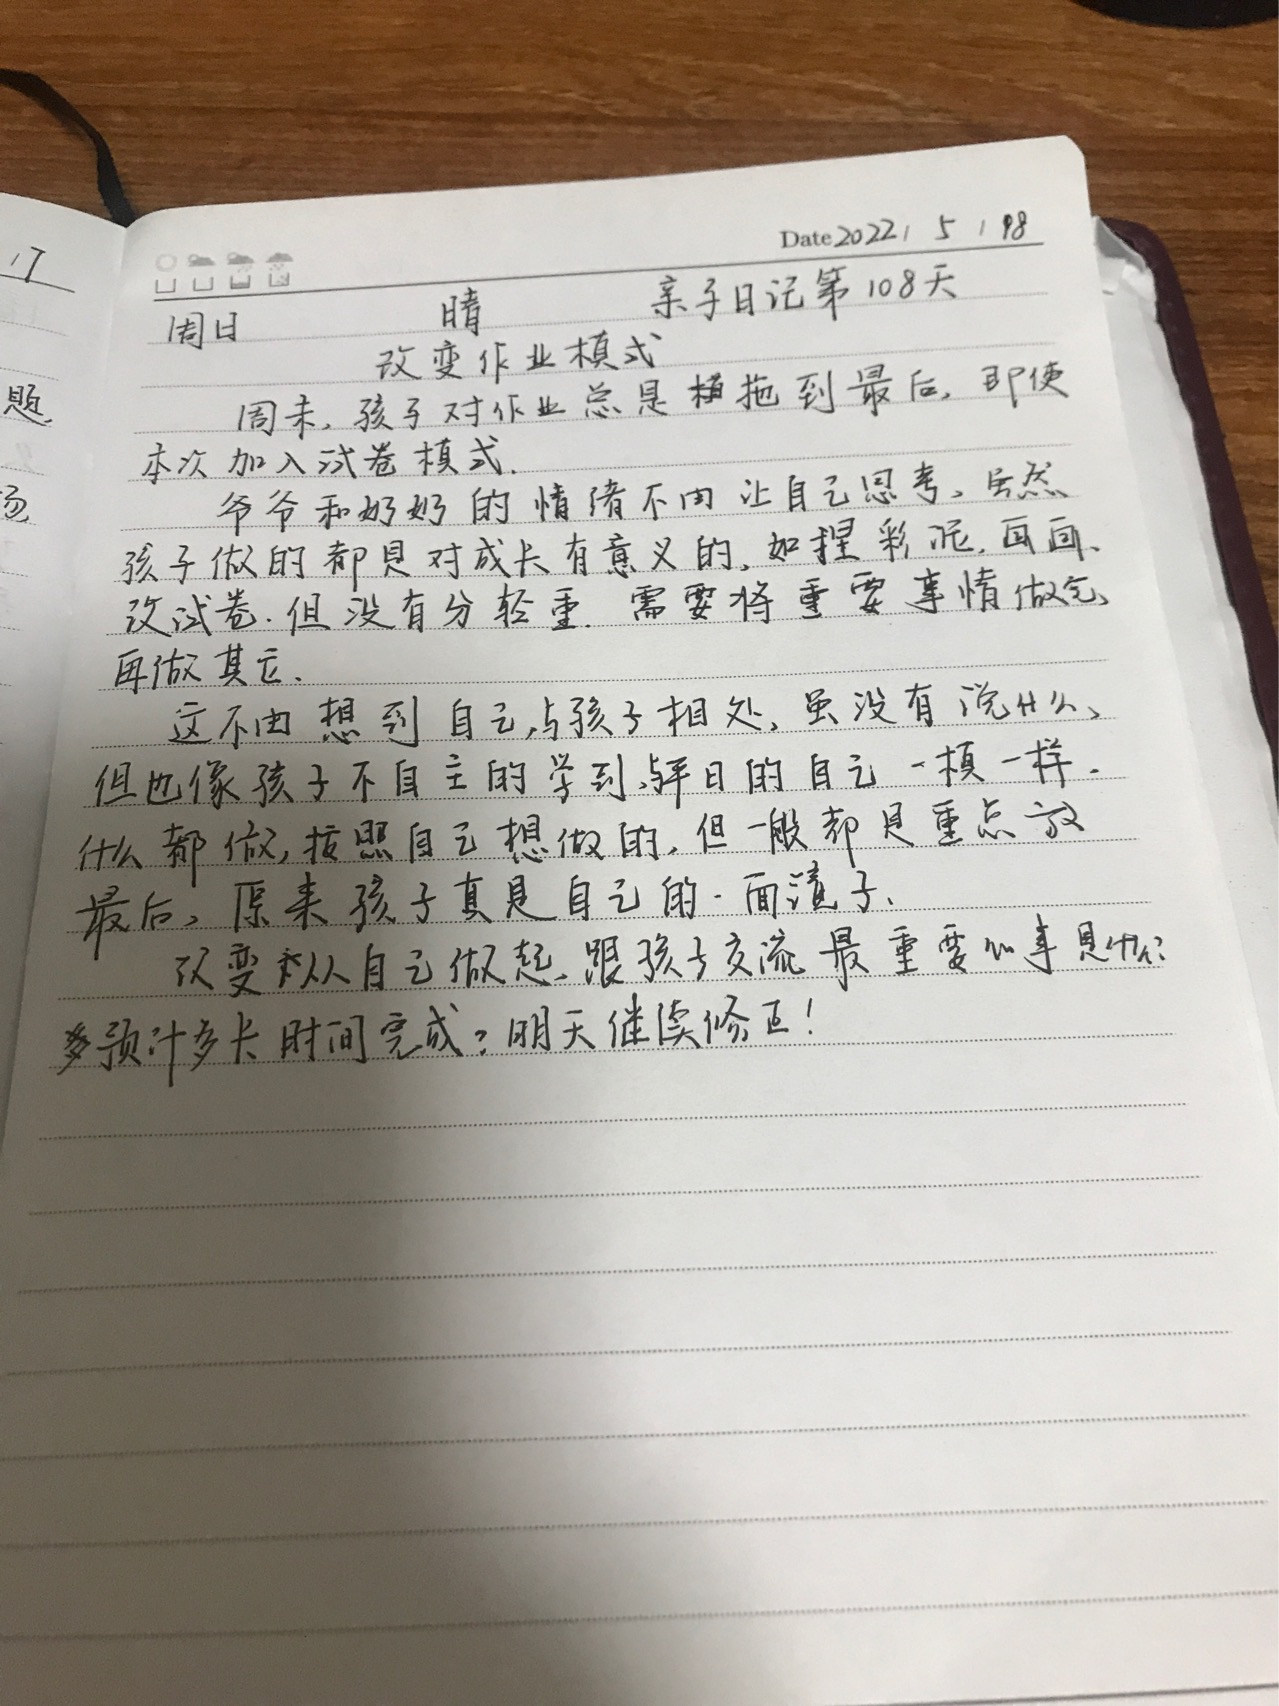 Date 2022 / 5 / 8
周日 晴 亲子日记第108天
改变作业模式
周末，孩子对作业总是拖到最后，即使
本次加入试卷模式.
爷爷和奶奶的情绪不由让自己思考、虽然
孩子做的都是对成长有意义的，如捏彩泥.画画、
改试卷.但没有分轻重.需要将重要事情做完、
再做其它.
这不由想到自己,与孩子相处，虽没有说什么、
但也像孩子不自主的学到、与平日的自己一模一样.
什么都做,按照自己想做的,但一般都是重点放
最后、原来孩子真是自己的一面镜子.
改变从自己做起、跟孩子交流最重要的事是什么?
预计多长时间完成?明天继续修正!
17
题
场